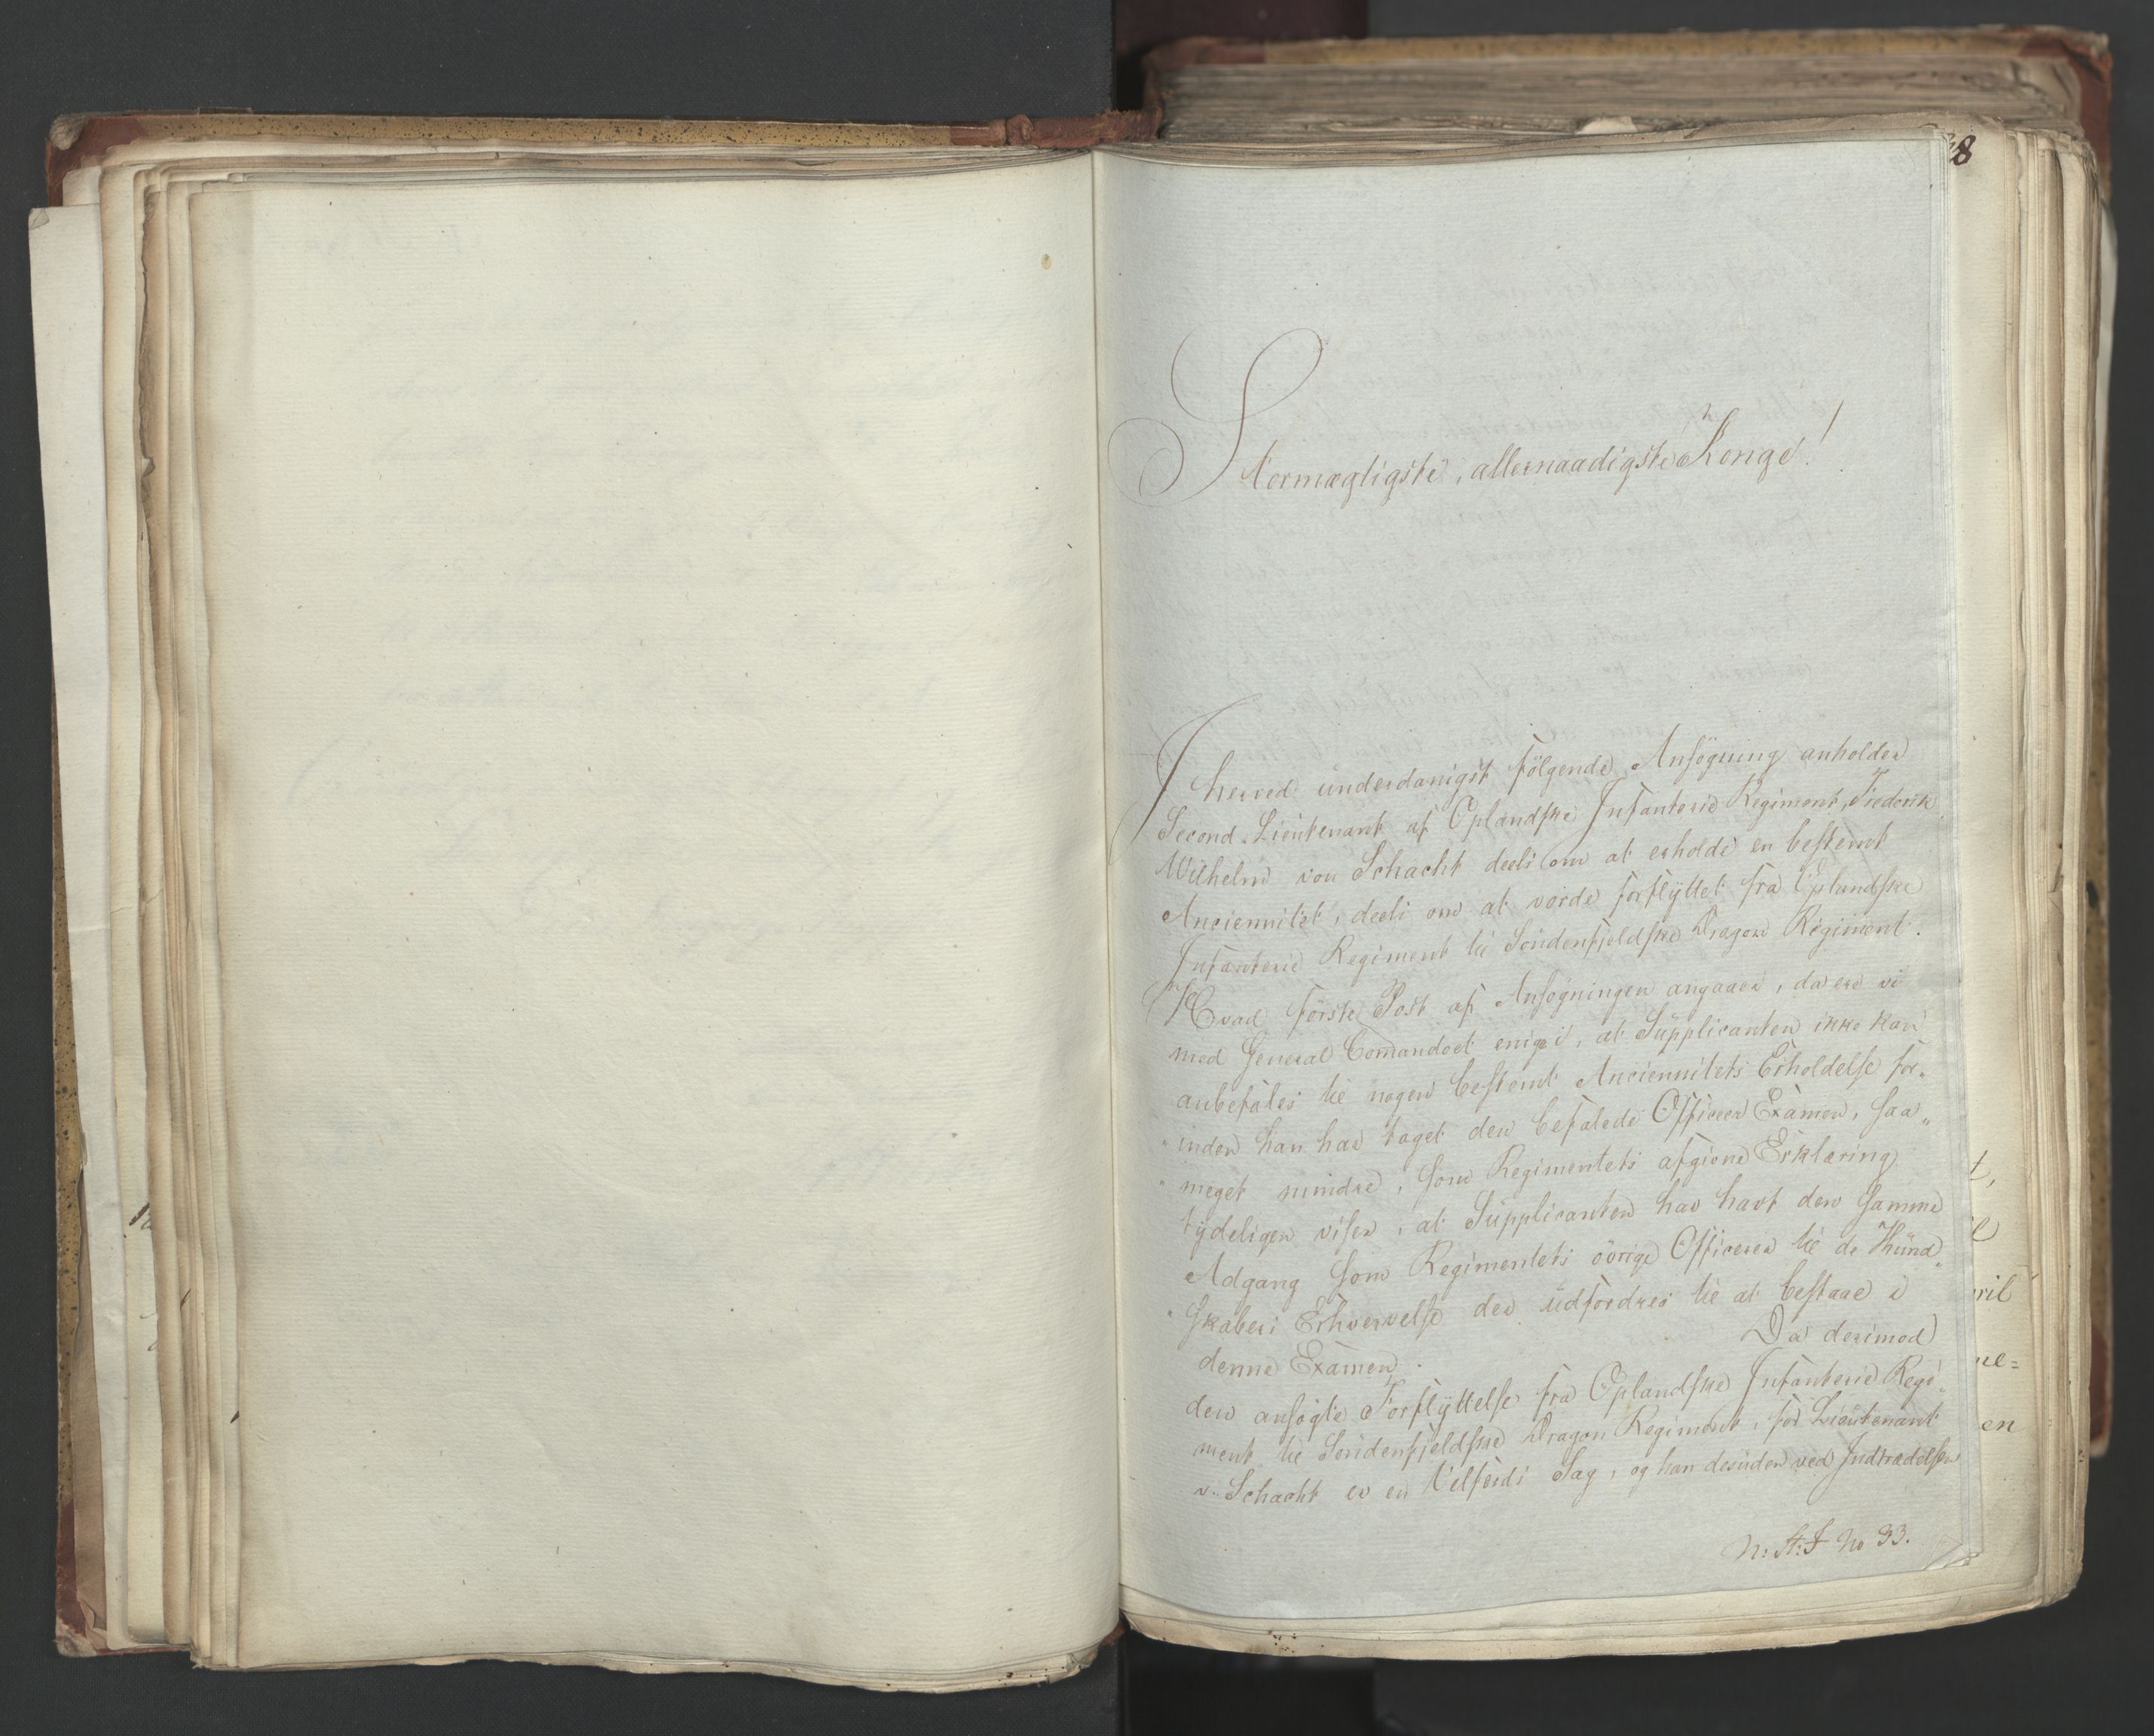 8
Stormægtigste, allernaadigste Konge!
I herved underdanigst følgende Ansøgning anholder
Second-Lieutenant af Oplandske Infanterie Regiment, Frederik
Wilhelm von Schacht deels om at erholde en bestemt
Anciennitet, deels om at vorde forflyttet fra Oplandske
Infanterie Regiment til Søndenfjeldske Dragon Regiment.
Hvad første Post af Ansøgningen angaaer, da ere vi
med General Comandoet enige i, at Supplicanten ikke kan
anbefales til nogen bestemt Anciennitets Erholdelse for„
„inden han har taget den befalede Officeer Examen, saa„
„meget mindre, som Regimentets afgivne Erklæring
tydeligen viser, at Supplicanten har havt den samme
Adgang som Regimentets øvrige Officerer til de Kund„
„skabers Erhvervelse der udfordres til at bestaae i
denne Examen.
Da derimod
den ansøgte Forflyttelse fra Oplandske Infanterie Regi„
ment til Søndenfjeldske Dragon Regiment, for Lieutenant
v. Schacht er en Velfærds Sag, og han desuden ved Indtrædelsen
N: St: I No 33.
t,
ril
ne=
en